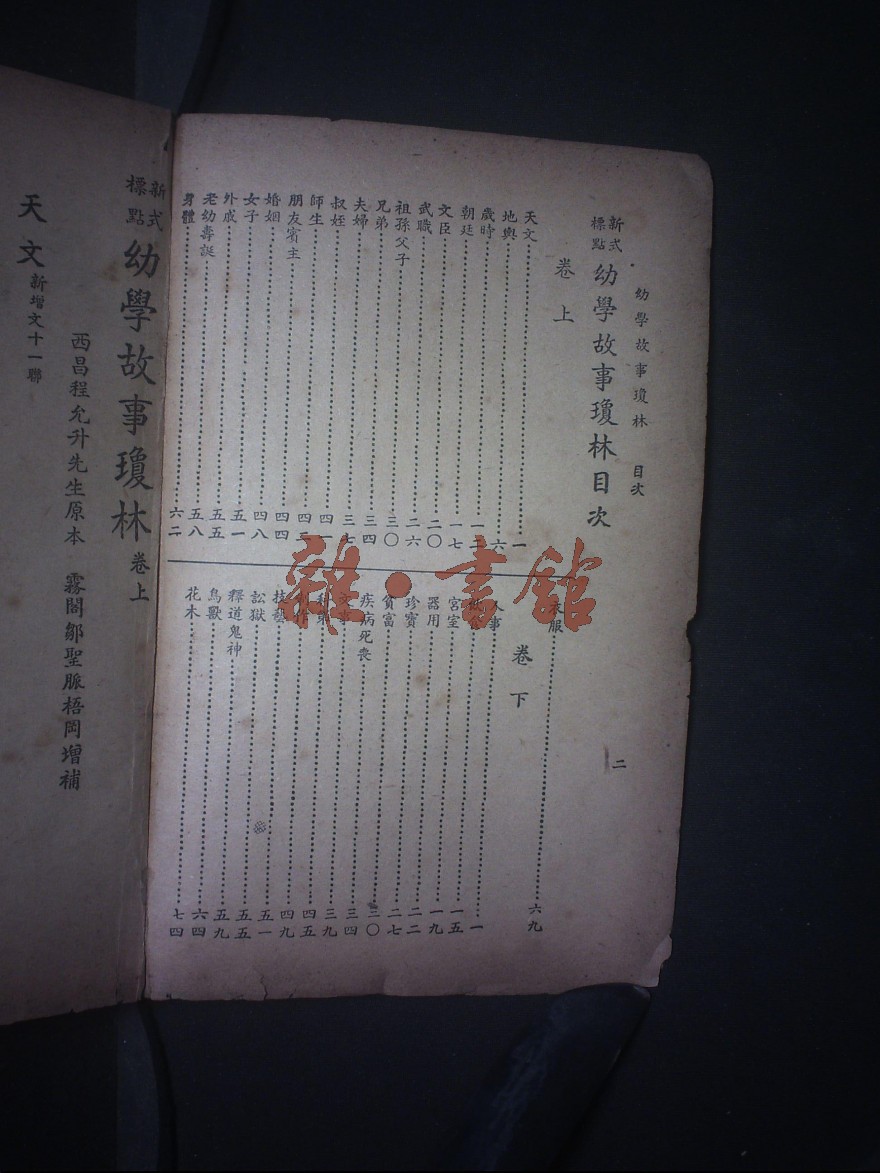 幼學故事瓊林 目次
二
新式標點 幼學故事瓊林目次
卷上
天文 一
地輿 六
歲時 一二
朝廷 一七
文臣 二〇
武職 二六
祖孫父子 三〇
兄弟 三四
夫婦 三七
叔姪 四一
師生 四二
朋友賓主 四四
婚姻 四八
女子 五一
外戚 五五
老幼壽誕 五八
身體 六二
衣服 六九
卷下
人事 一
飲食 一五
宮室 一九
器用 二二
珍寶 二七
貧富 三〇
疾病死喪 三四
文事 三九
科第 四五
製作 四九
技藝 五一
訟獄 五五
釋道鬼神 五九
鳥獸 六四
花木 七四
新式標點 幼學故事瓊林 卷上
西昌程允升先生原本 霧閣鄒聖脈梧岡增補
天文 新增文十一聯
雜·書館